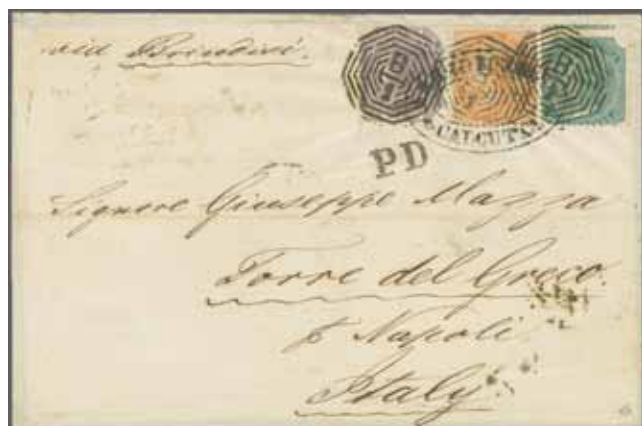 via Brindisi.
B
1
B
1
CALCUTTA
PD
Signore Giuseppe Mazza
Torre del Greco.
p Napoli
Italy